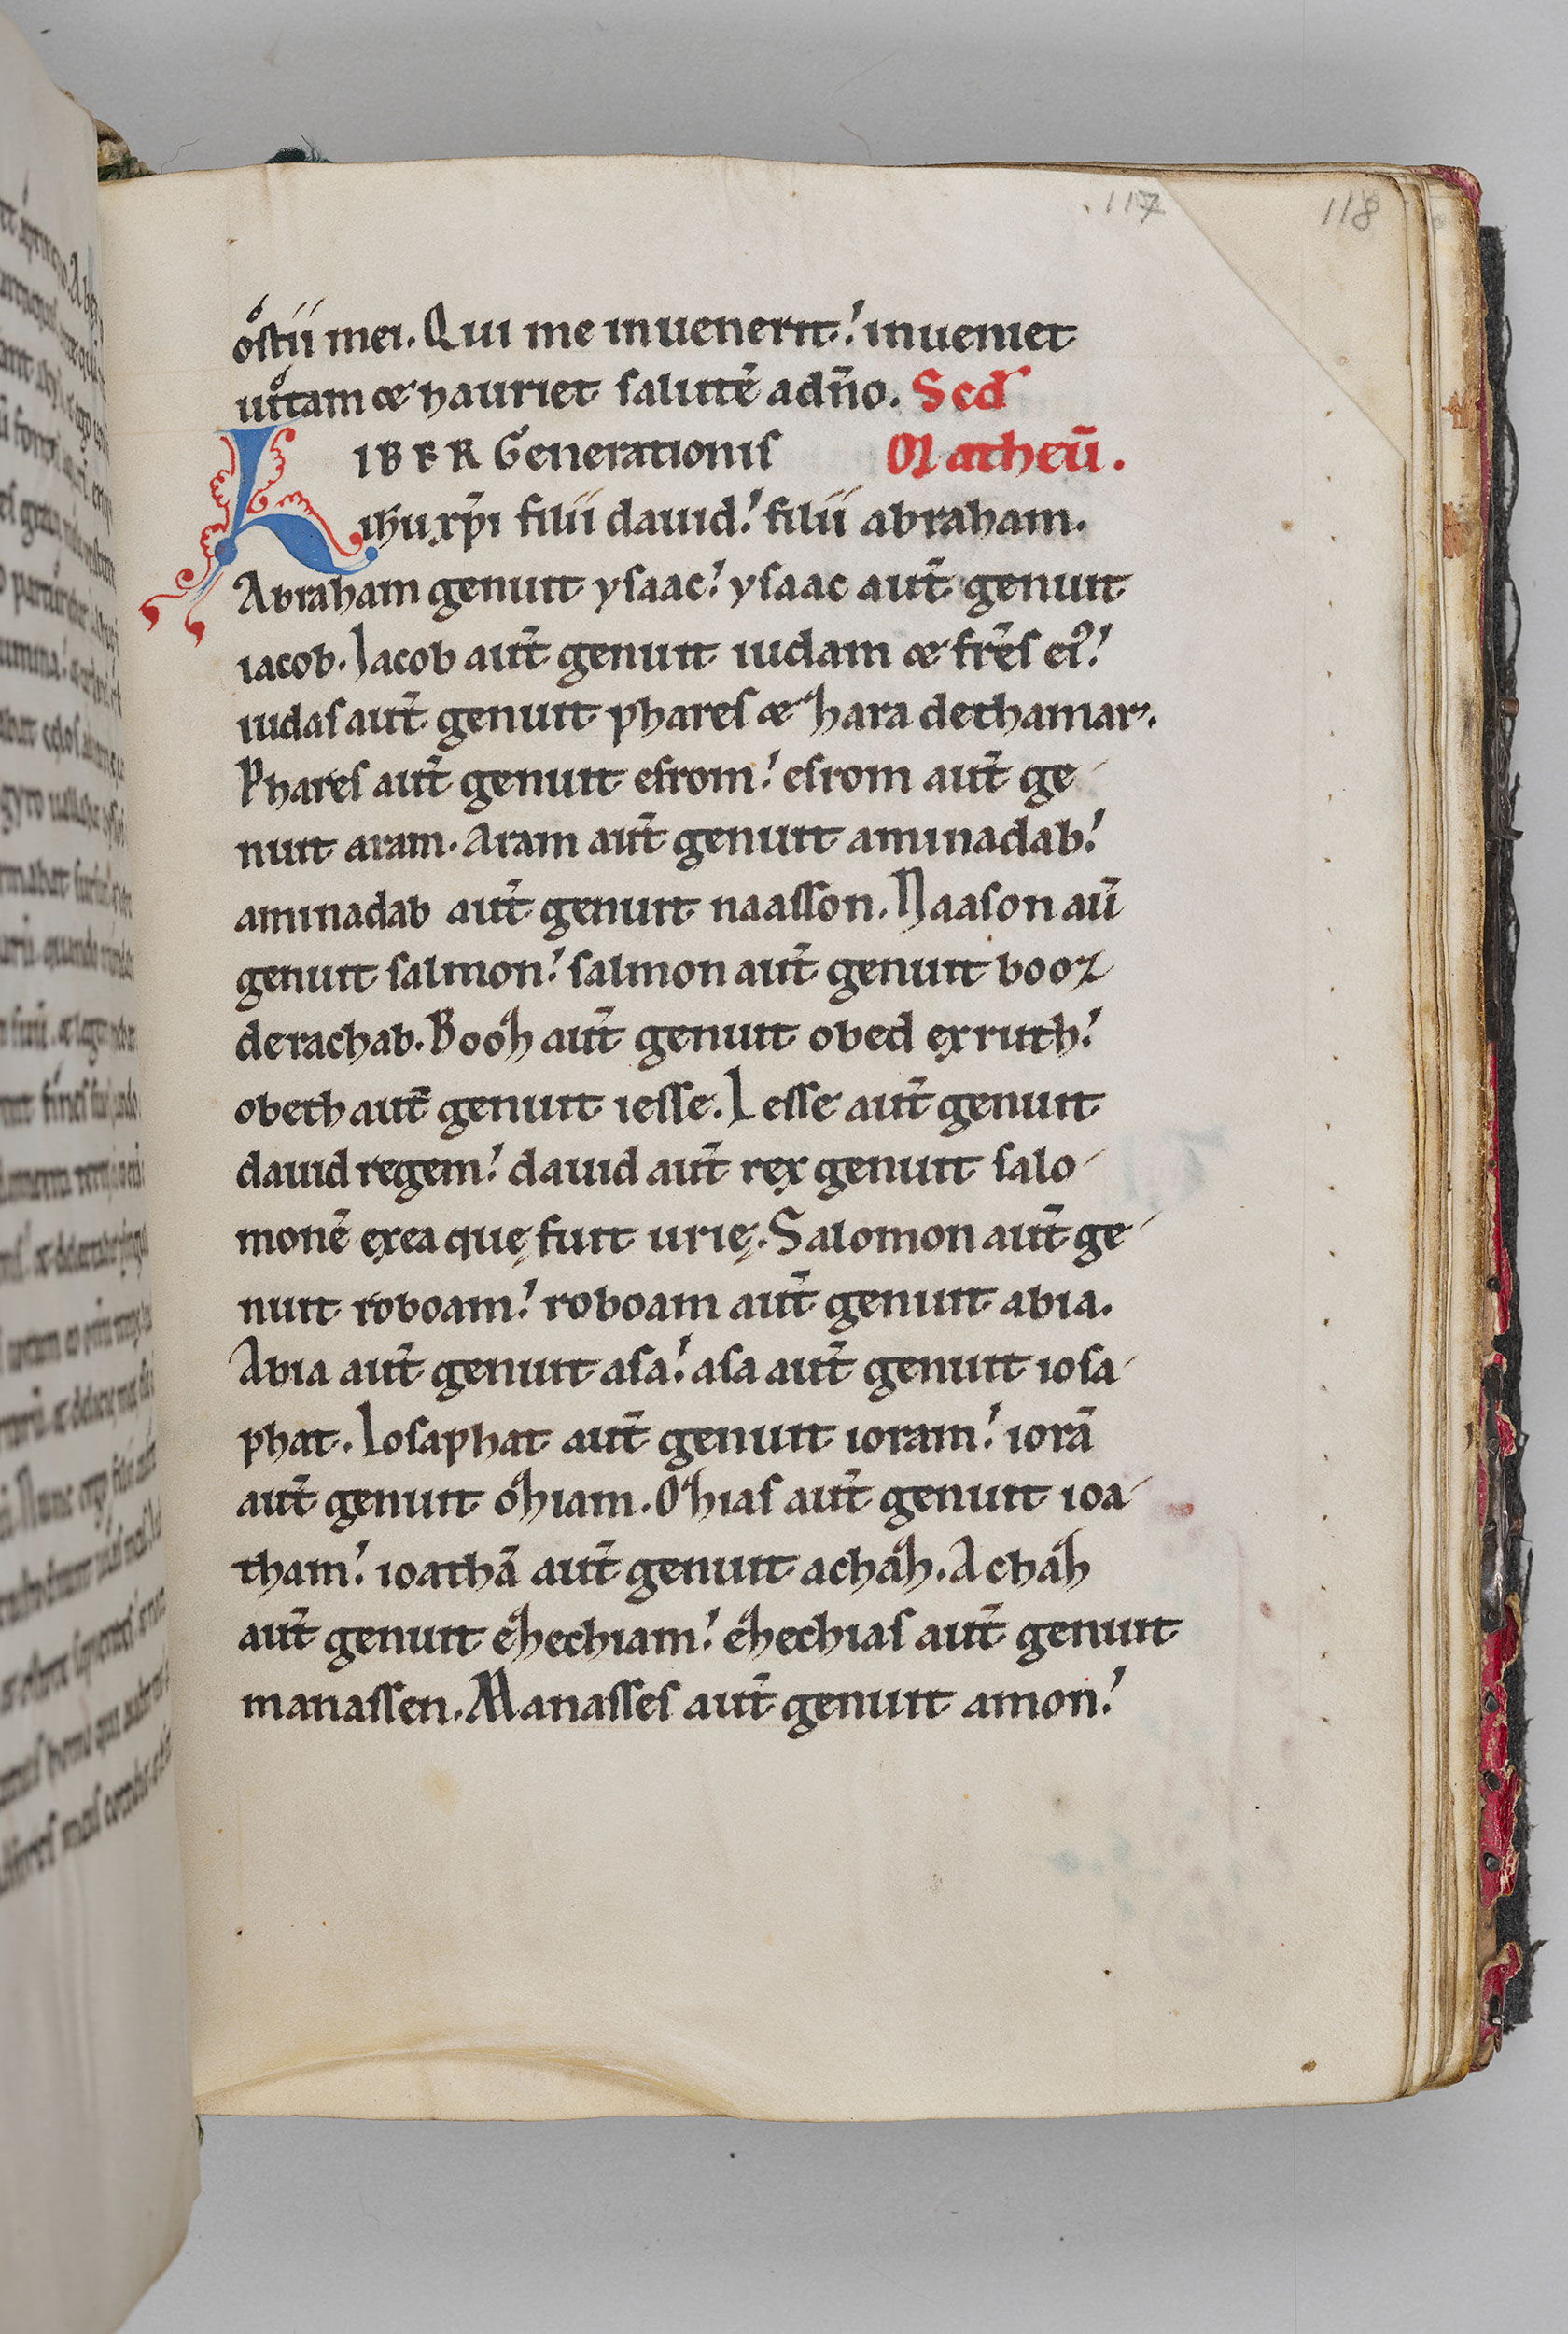 117
118
ostii mei. Qui me inuenerit! inueniet
uitam et hauriet salutē a dn̄o. Scd
LIBER Generationis Matheū.
ihu xp̄i filii dauid! filii abraham.
Abraham genuit ysaac! ysaac aut̄ genuit
iacob. Iacob aut̄ genuit iudam et fr̄es ei9!
iudas aut̄ genuit phares et zara de thamar.
Phares aut̄ genuit esrom! esrom aut̄ ge-
nuit aram. Aram aut̄ genuit aminadab!
aminadab aut̄ genuit naasson. Naason aū
genuit salmon! salmon aut̄ genuit booz
de rachab. Booz aut̄ genuit obed ex ruth!
obeth aut̄ genuit iesse. Iesse aut̄ genuit
dauid regem! dauid aut̄ rex genuit salo-
monē ex ea quę fuit urię. Salomon aut̄ ge-
nuit roboam! roboam aut̄ genuit abia.
Abia aut̄ genuit asa! asa aut̄ genuit iosa-
phat. Iosaphat aut̄ genuit ioram! iorā
aut̄ genuit oziam. Ozias aut̄ genuit ioa-
tham! ioathā aut̄ genuit achaz. Achaz
aut̄ genuit ezechiam! ezechias aut̄ genuit
manassen. Manasses aut̄ genuit amon!